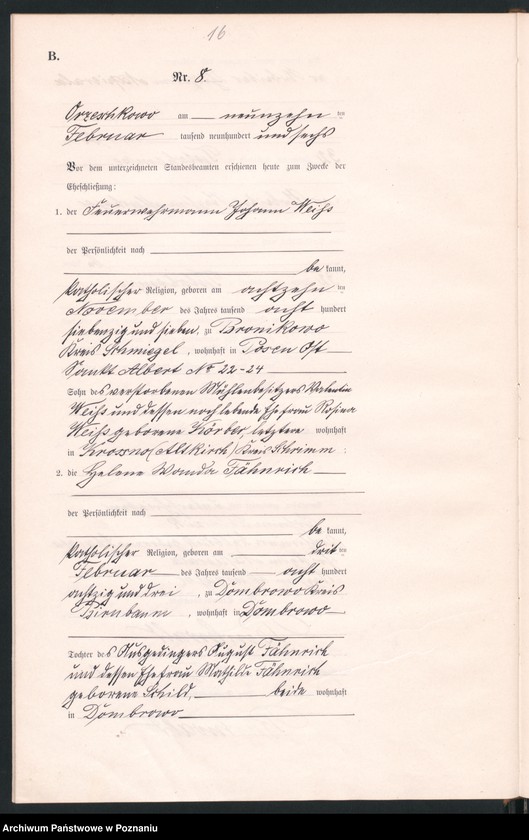 16
B.
Nr. 8.
Orzeschkowo am neunzehn ten
Februar tausend neunhundert und sechs
Vor dem unterzeichneten Standesbeamten erschienen heute zum Zwecke der
Eheschließung:
1. der Feuerwehrmann Johann Weiß
der Persönlichkeit nach
be kannt,
katholischer Religion, geboren am achtzehn ten
November des Jahres tausend acht hundert
siebenzig und sieben, zu Bronikowo
Kreis Schmiegel, wohnhaft in Posen Ost
Sankt Albert No 22-24
Sohn des verstorbenen Mühlenbesitzers Valentin
Weiß und dessen noch lebende Ehefrau Rosina
Weiß geborene Körber, letztere wohnhaft
in Krosno (Altkirch) Kreis Schrimm :
2. die Helene Wanda Fähnrich
der Persönlichkeit nach
be kannt,
katholischer Religion, geboren am drit ten
Februar des Jahres tausend acht hundert
achtzig und drei, zu Dombrowo Kreis
Birnbaum, wohnhaft in Dombrowo
Tochter des Ausgedingers August Fähnrich
und dessen Ehefrau Mathilde Fähnrich
geborene Schild, beide wohnhaft
in Dombrowo
Archiwum Państwowe w Poznaniu